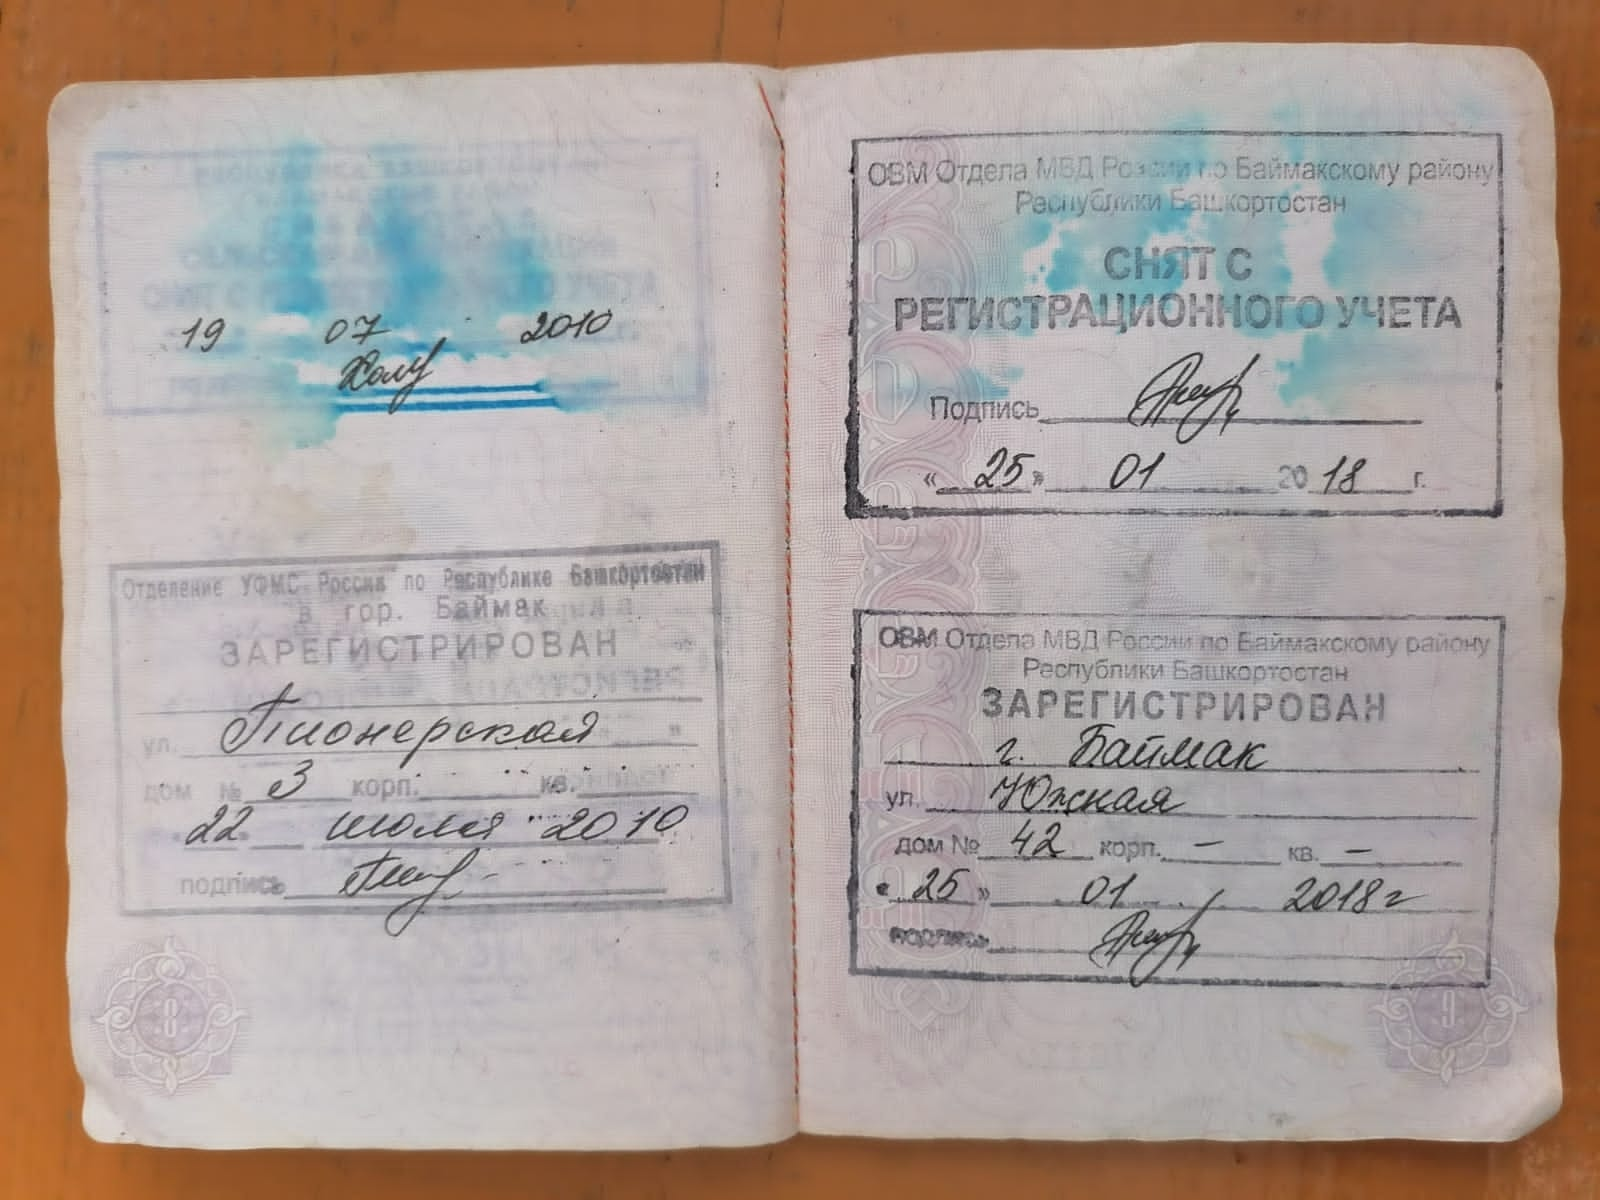 СНЯТ С УЧЕТА
19 07 2010
Отделение УФМС России по Республике Башкортостан
в гор. Баймак
ЗАРЕГИСТРИРОВАН
ул. Пионерская
дом № 3 корп. кв.
22 июля 2010
подпись
8
ОВМ Отдела МВД России по Баймакскому району
Республики Башкортостан
СНЯТ С
РЕГИСТРАЦИОННОГО УЧЕТА
Подпись
« 25 » 01 20 18 г.
ОВМ Отдела МВД России по Баймакскому району
Республики Башкортостан
ЗАРЕГИСТРИРОВАН
г. Баймак
ул. Южная
дом № 42 корп. – кв. –
« 25 » 01 2018 г
подпись
9